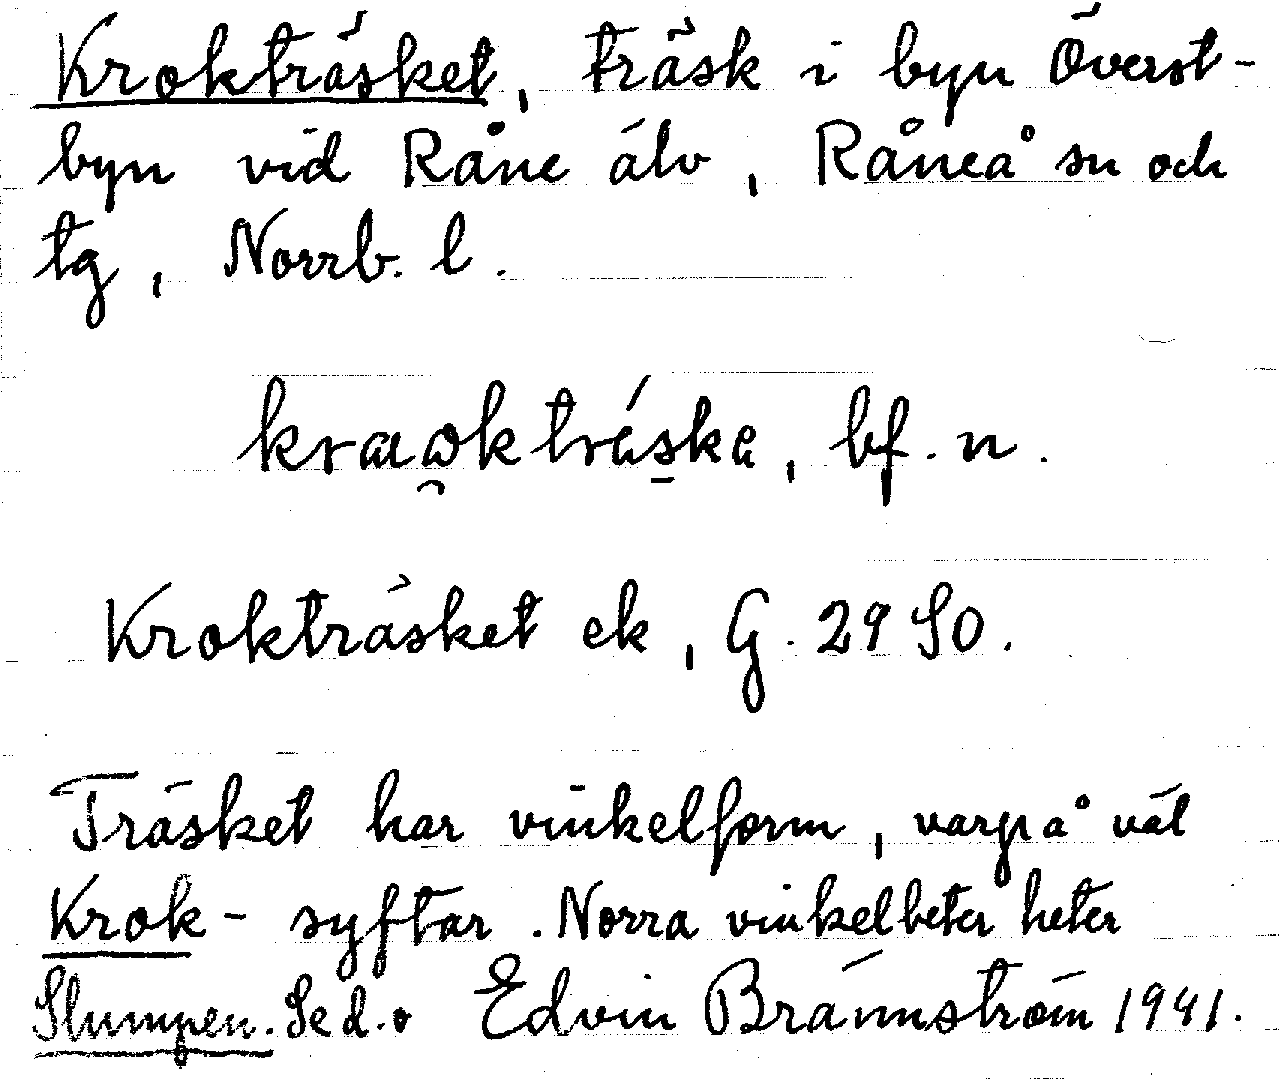 Krokträsket, träsk i byn Överst-
byn vid Råne älv, Råneå sn och
tg, Norrb. l.
bf. n.
Krokträsket ek, G. 29 SO.
Träsket har vinkelform, varpå väl
Krok- syftar. Norra vinkelbeter heter
Slumpen. Se d.o Edvin Brännström 1941.